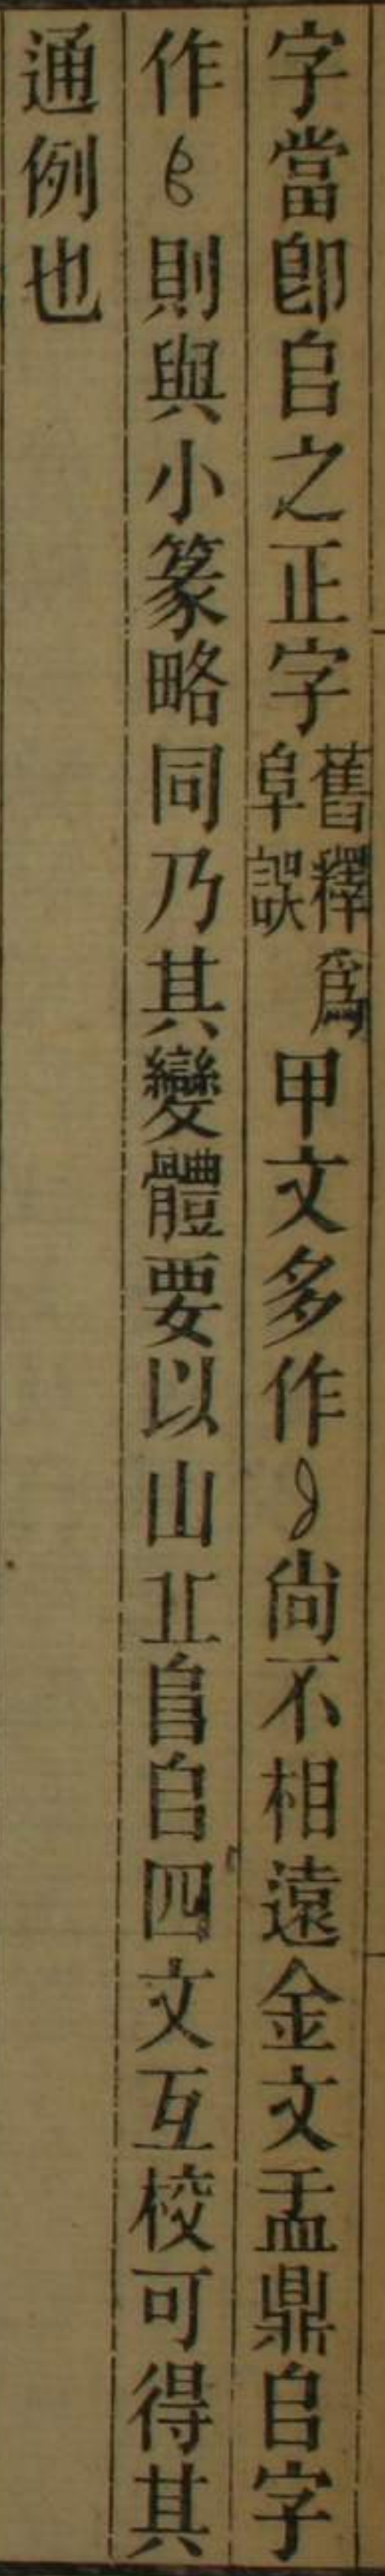 字當卽𠂤之正字舊釋爲𨸏誤甲文多作尙不相遠金文盂鼎𠂤字
作則與小篆略同乃其變體要以山丠𨸏𠂤四文互校可得其
通例也